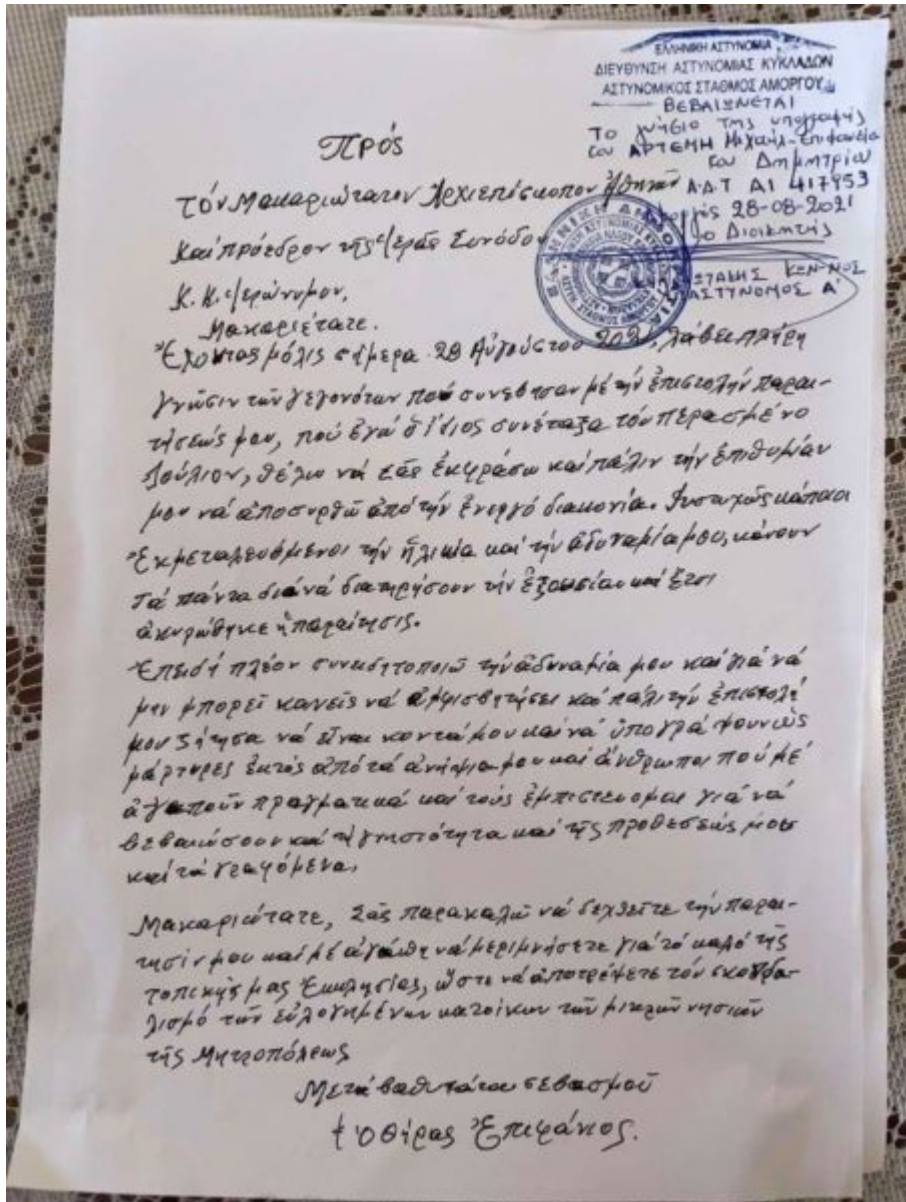 ΕΛΛΗΝΙΚΗ ΑΣΤΥΝΟΜΙΑ
ΔΙΕΥΘΥΝΣΗ ΑΣΤΥΝΟΜΙΑΣ ΚΥΚΛΑΔΩΝ
ΑΣΤΥΝΟΜΙΚΟΣ ΣΤΑΘΜΟΣ ΑΜΟΡΓΟΥ
ΒΕΒΑΙΩΝΕΤΑΙ
Το γνήσιο της υπογραφής
του ΑΡΤΕΜΗ Μιχαήλ-Επιφανείο
του Δημητρίου
Α.Δ.Τ ΑΙ 417953
28-08-2021
ο Διοικητής
ΚΩΝ-ΝΟΣ
ΑΣΤΥΝΟΜΟΣ Α'
Πρός
τόν Μακαριώτατον Ἀρχιεπίσκοπον Ἀθηνῶν
καί πρόεδρον τῆς Ἱερᾶς Συνόδου
κ.κ. Ἱερώνυμον.
Μακαριώτατε.
Ἔχοντας μόλις σήμερα 28 Αὐγούστου 2021, λάβει πλήρη
γνῶσιν τῶν γεγονότων πού συνέβησαν μέ τήν ἐπιστολήν παραι-
τήσεώς μου, πού ἐγώ ὁ ἴδιος συνέταξα τόν περασμένο
Ἰούλιον, θέλω νά σᾶς ἐκφράσω καί πάλιν τήν ἐπιθυμίαν
μου νά ἀποσυρθῶ ἀπό τήν ἐνεργό διακονία. Δυστυχῶς κάποιοι
ἐκμεταλευόμενοι τήν ἡλικία καί τήν ἀδυναμία μου, κάνουν
τά πάντα διά νά διατηρήσουν τήν ἐξουσίαν καί ἔτσι
ἀκυρώθηκε ἡ παραίτησις.
Ἐπειδή πλέον συνειδητοποιῶ τήν ἀδυναμία μου καί γιά νά
μην μπορεῖ κανείς νά ἀμφισβητήσει καί πάλι τήν ἐπιστολή
μου ζήτησα νά εἶναι κοντά μου καί νά ὑπογράψουν ὡς
μάρτυρες ἐκτός ἀπό τά ἀνήψια μου καί ἄνθρωποι πού μέ
ἀγαποῦν πραγματικά καί τούς ἐμπιστεύομαι γιά νά
βεβαιώσουν καί τή γνησιότητα καί τῆς προθέσεώς μου
καί τά γραφόμενα.
Μακαριώτατε, Σᾶς παρακαλῶ νά δεχθεῖτε τήν παραι-
τησίν μου καί μέ ἀγάπη νά μεριμνήσετε γιά τό καλό τῆς
τοπικῆς μας Ἐκκλησίας, ὥστε νά ἀποτρέψετε τόν σκανδα-
λισμό τῶν εὐλογημένων κατοίκων τῶν μικρῶν νησιῶν
τῆς Μητροπόλεως
Μετά βαθυτάτου σεβασμοῦ
† ὁ Θήρας Ἐπιφάνιος.